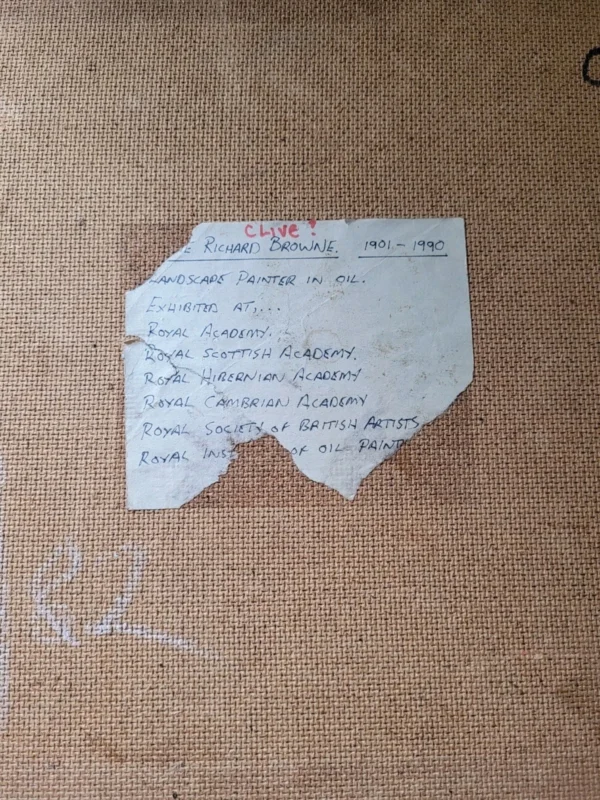 CLIVE?
E RICHARD BROWNE. 1901 - 1990
LANDSCAPE PAINTER IN OIL.
EXHIBITED AT,...
ROYAL ACADEMY.
ROYAL SCOTTISH ACADEMY.
ROYAL HIBERNIAN ACADEMY
ROYAL CAMBRIAN ACADEMY
ROYAL SOCIETY OF BRITISH ARTISTS
ROYAL INS OF OIL PAINT